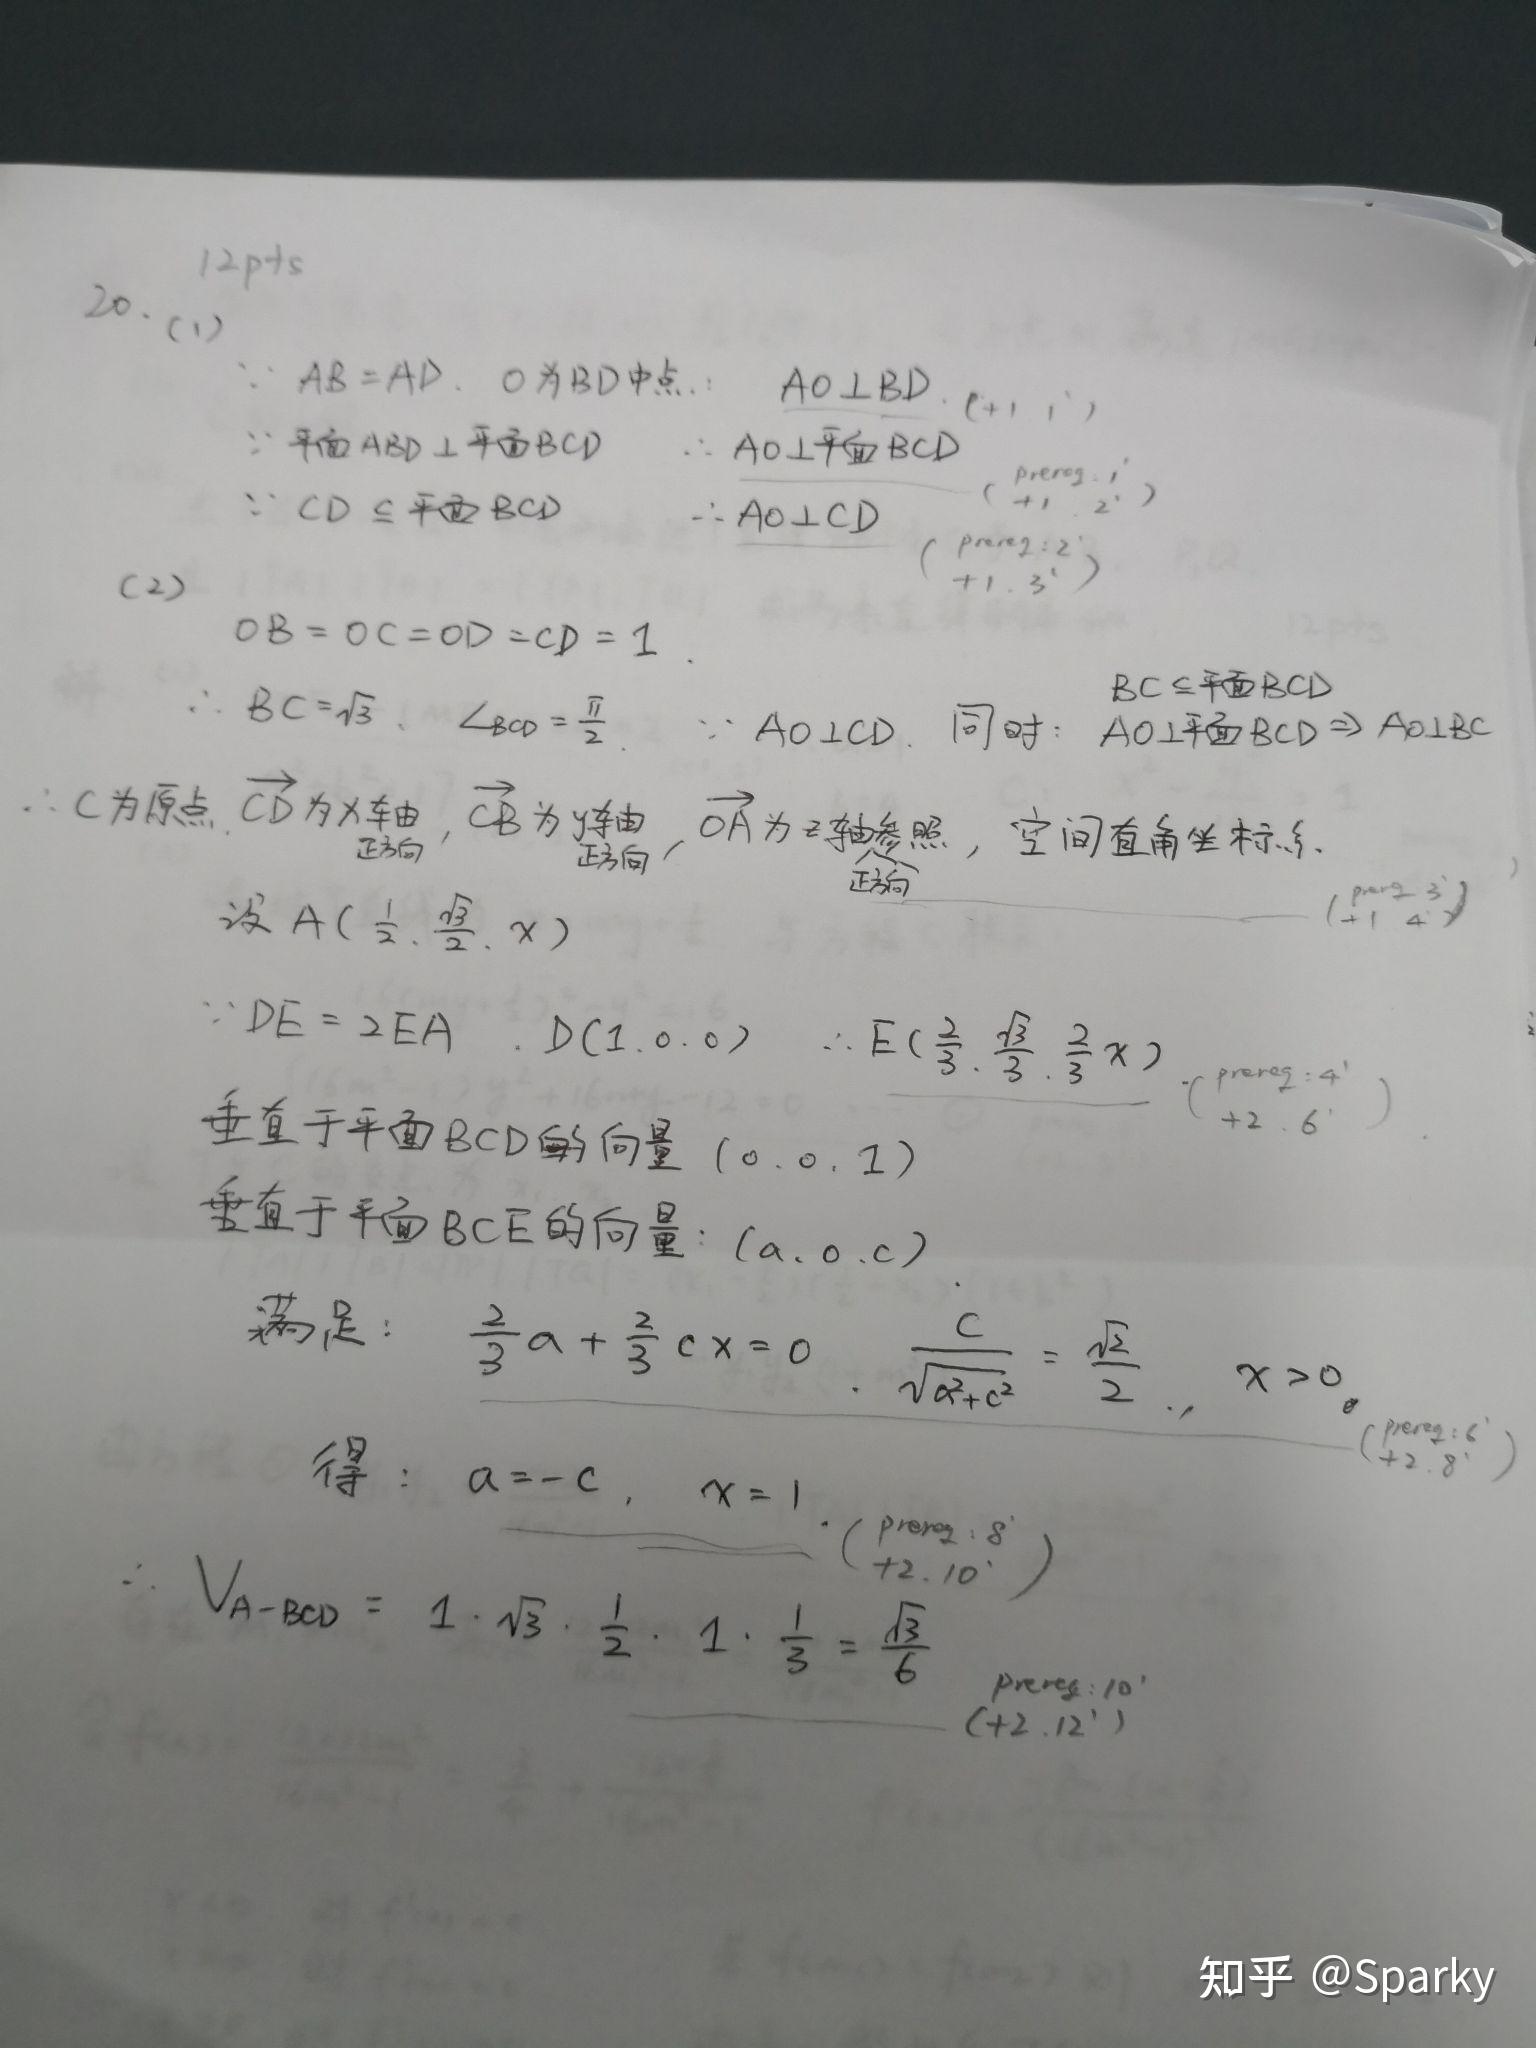 12pts
20. (1)
∵ AB=AD. O为BD中点. AO⊥BD. (+1 1')
∵ 平面ABD⊥平面BCD ∴ AO⊥平面BCD (prereq: 1' +1. 2')
∵ CD⊆平面BCD ∴ AO⊥CD (prereq: 2' +1. 3')
(2)
OB=OC=OD=CD=1.
BC⊆平面BCD
∴ BC=√3. ∠BCD=π/2. ∵ AO⊥CD. 同时: AO⊥平面BCD⇒AO⊥BC
∴ C为原点. CD为x轴正方向, CB为y轴正方向, OA为z轴正方向参照, 空间直角坐标系. (prereq 3' +1 4')
设A(1/2. √3/2. x)
∵ DE=2EA. D(1.0.0) ∴ E(2/3. √3/3. 2/3 x). (prereq: 4' +2. 6')
垂直于平面BCD的向量(0.0.1)
垂直于平面BCE的向量: (a.0.c).
满足: 2/3 a + 2/3 cx = 0. c/√(a²+c²) = √2/2., x>0. (prereq: 6' +2. 8')
得: a=-c, x=1. (prereq: 8' +2. 10')
∴ V_A-BCD = 1·√3·1/2·1·1/3 = √3/6 (prereq: 10' +2. 12')
知乎 @Sparky